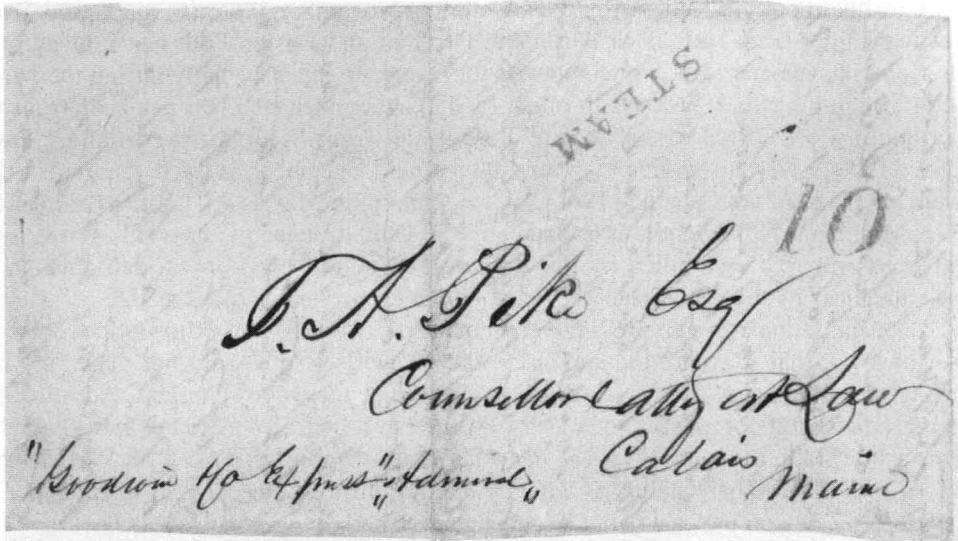 STEAM
10
F. A. Pike Esq
Counsellor & atty at Law
Calais
Maine
"Goodwin & Co Express" "Admiral"